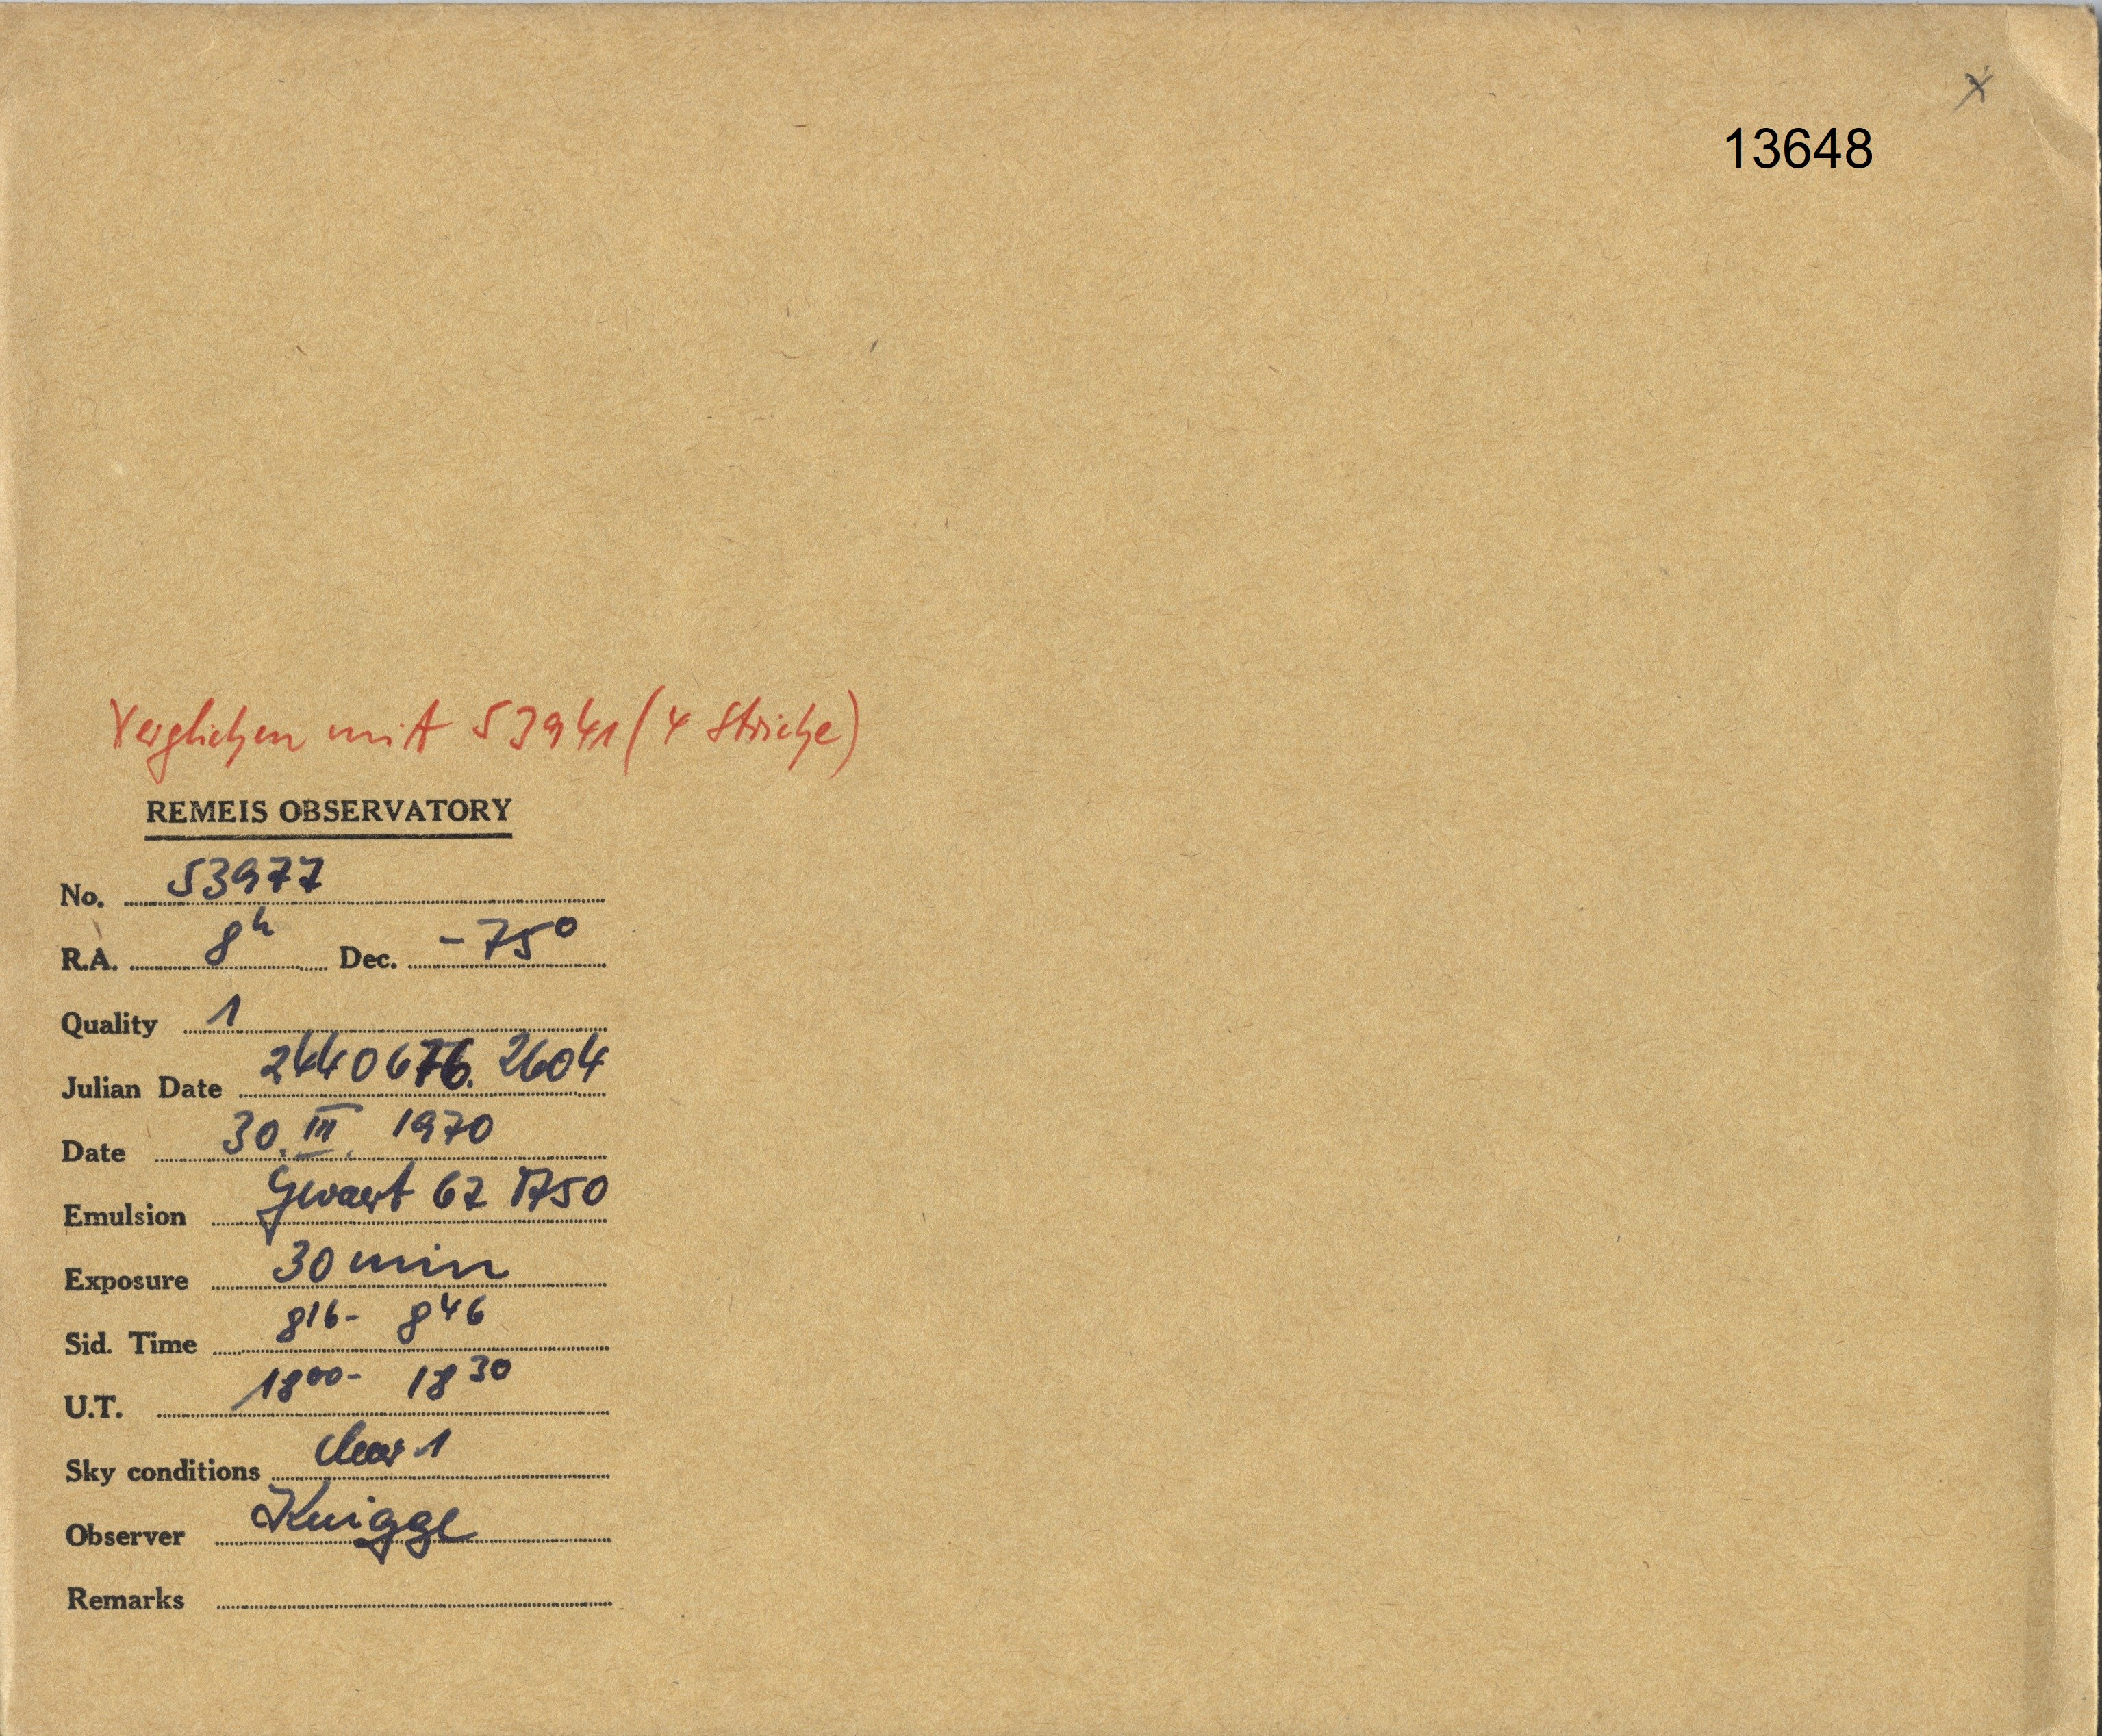 x
13648
Verglichen mit 53941 (4 Striche)
REMEIS OBSERVATORY
No. 53977
R.A. 8h Dec. -75°
Quality 1
Julian Date 2440676.2604
Date 30. III. 1970
Emulsion Gevaert 67 1750
Exposure 30 min
Sid. Time 8 16 - 8 46
U.T. 18 00 - 18 30
Sky conditions clear 1
Observer Knigge
Remarks